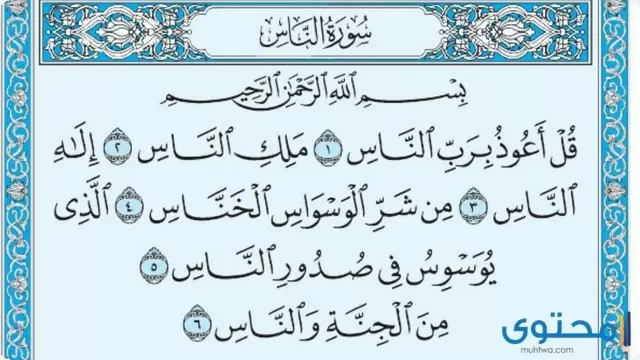 سُورَةُ النَّاسِ
بِسْمِ اللَّهِ الرَّحْمَٰنِ الرَّحِيمِ
قُلْ أَعُوذُ بِرَبِّ النَّاسِ ١ مَلِكِ النَّاسِ ٢ إِلَٰهِ
النَّاسِ ٣ مِن شَرِّ الْوَسْوَاسِ الْخَنَّاسِ ٤ الَّذِي
يُوَسْوِسُ فِي صُدُورِ النَّاسِ ٥
مِنَ الْجِنَّةِ وَالنَّاسِ ٦
محتوى
muhtwa.com